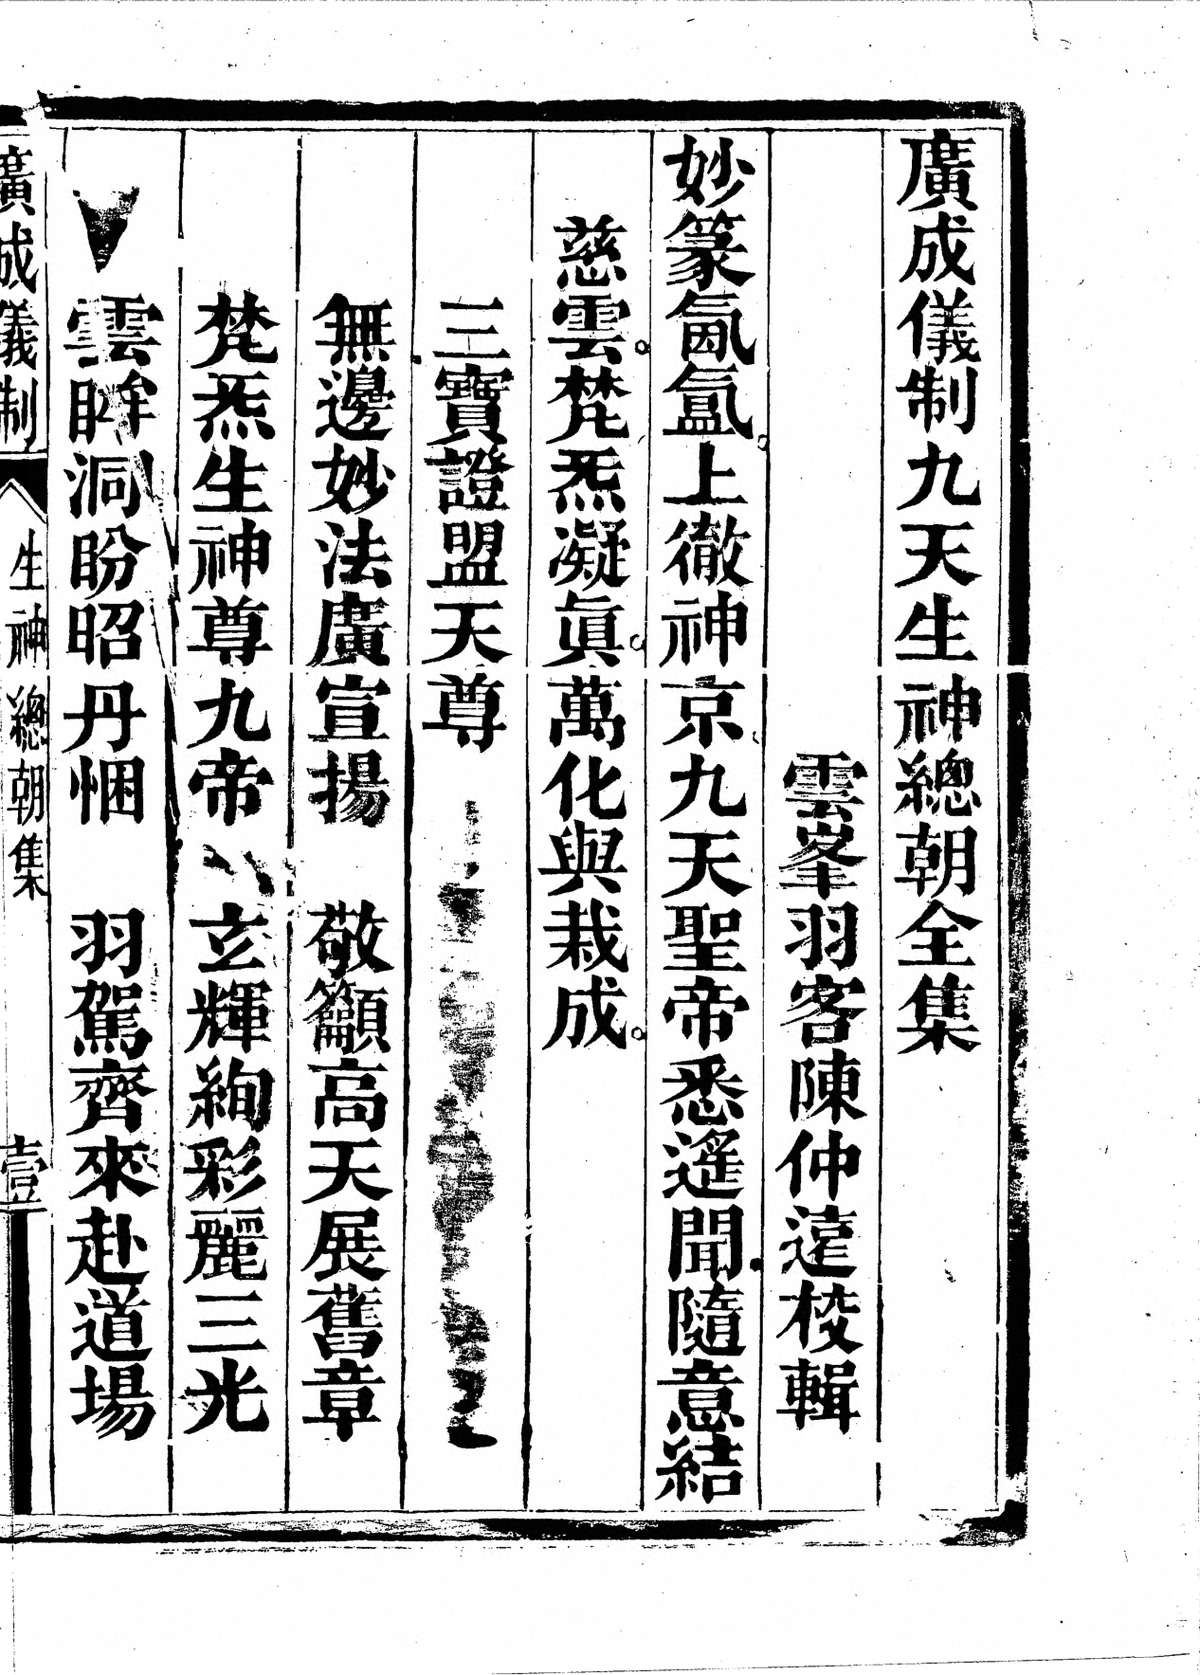 廣成儀制九天生神總朝全集
雲峯羽客陳仲遠校輯
妙篆氤氳上徹神京九天聖帝悉遙聞隨意結
慈雲。梵炁凝眞。萬化與栽成。
三寶證盟天尊
無邊妙法廣宣揚　敬籲高天展舊章
梵炁生神尊九帝　玄輝絢彩麗三光
雲眸洞盼昭丹悃　羽駕齊來赴道場
廣成儀制　生神總朝集　壹